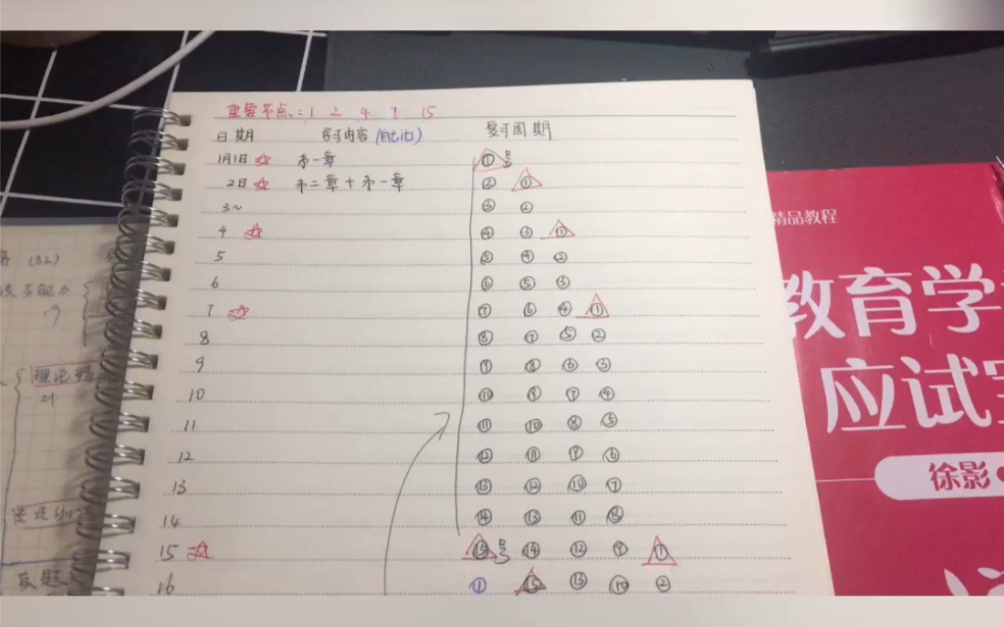 重要节点：1 2 4 7 15
日期 学习内容 (自己过) 复习周期
1月1日 ☆ 第一章 ① 号
2日 ☆ 第二章 + 第一章 ② ①
3~ ③ ②
4 ☆ ④ ③ ①
5 ⑤ ④ ②
6 ⑥ ⑤ ③
7 ☆ ⑦ ⑥ ④ ①
8 ⑧ ⑦ ⑤ ②
9 ⑨ ⑧ ⑥ ③
10 ⑩ ⑨ ⑦ ④
11 ⑪ ⑩ ⑧ ⑤
12 ⑫ ⑪ ⑨ ⑥
13 ⑬ ⑫ ⑩ ⑦
14 ⑭ ⑬ ⑪ ⑧
15 ☆ ⑮ 号 ⑭ ⑫ ⑨ ①
16 ① ⑮ ⑬ ⑩ ②
(32)
真题
精品教程
教育学
应试
徐影